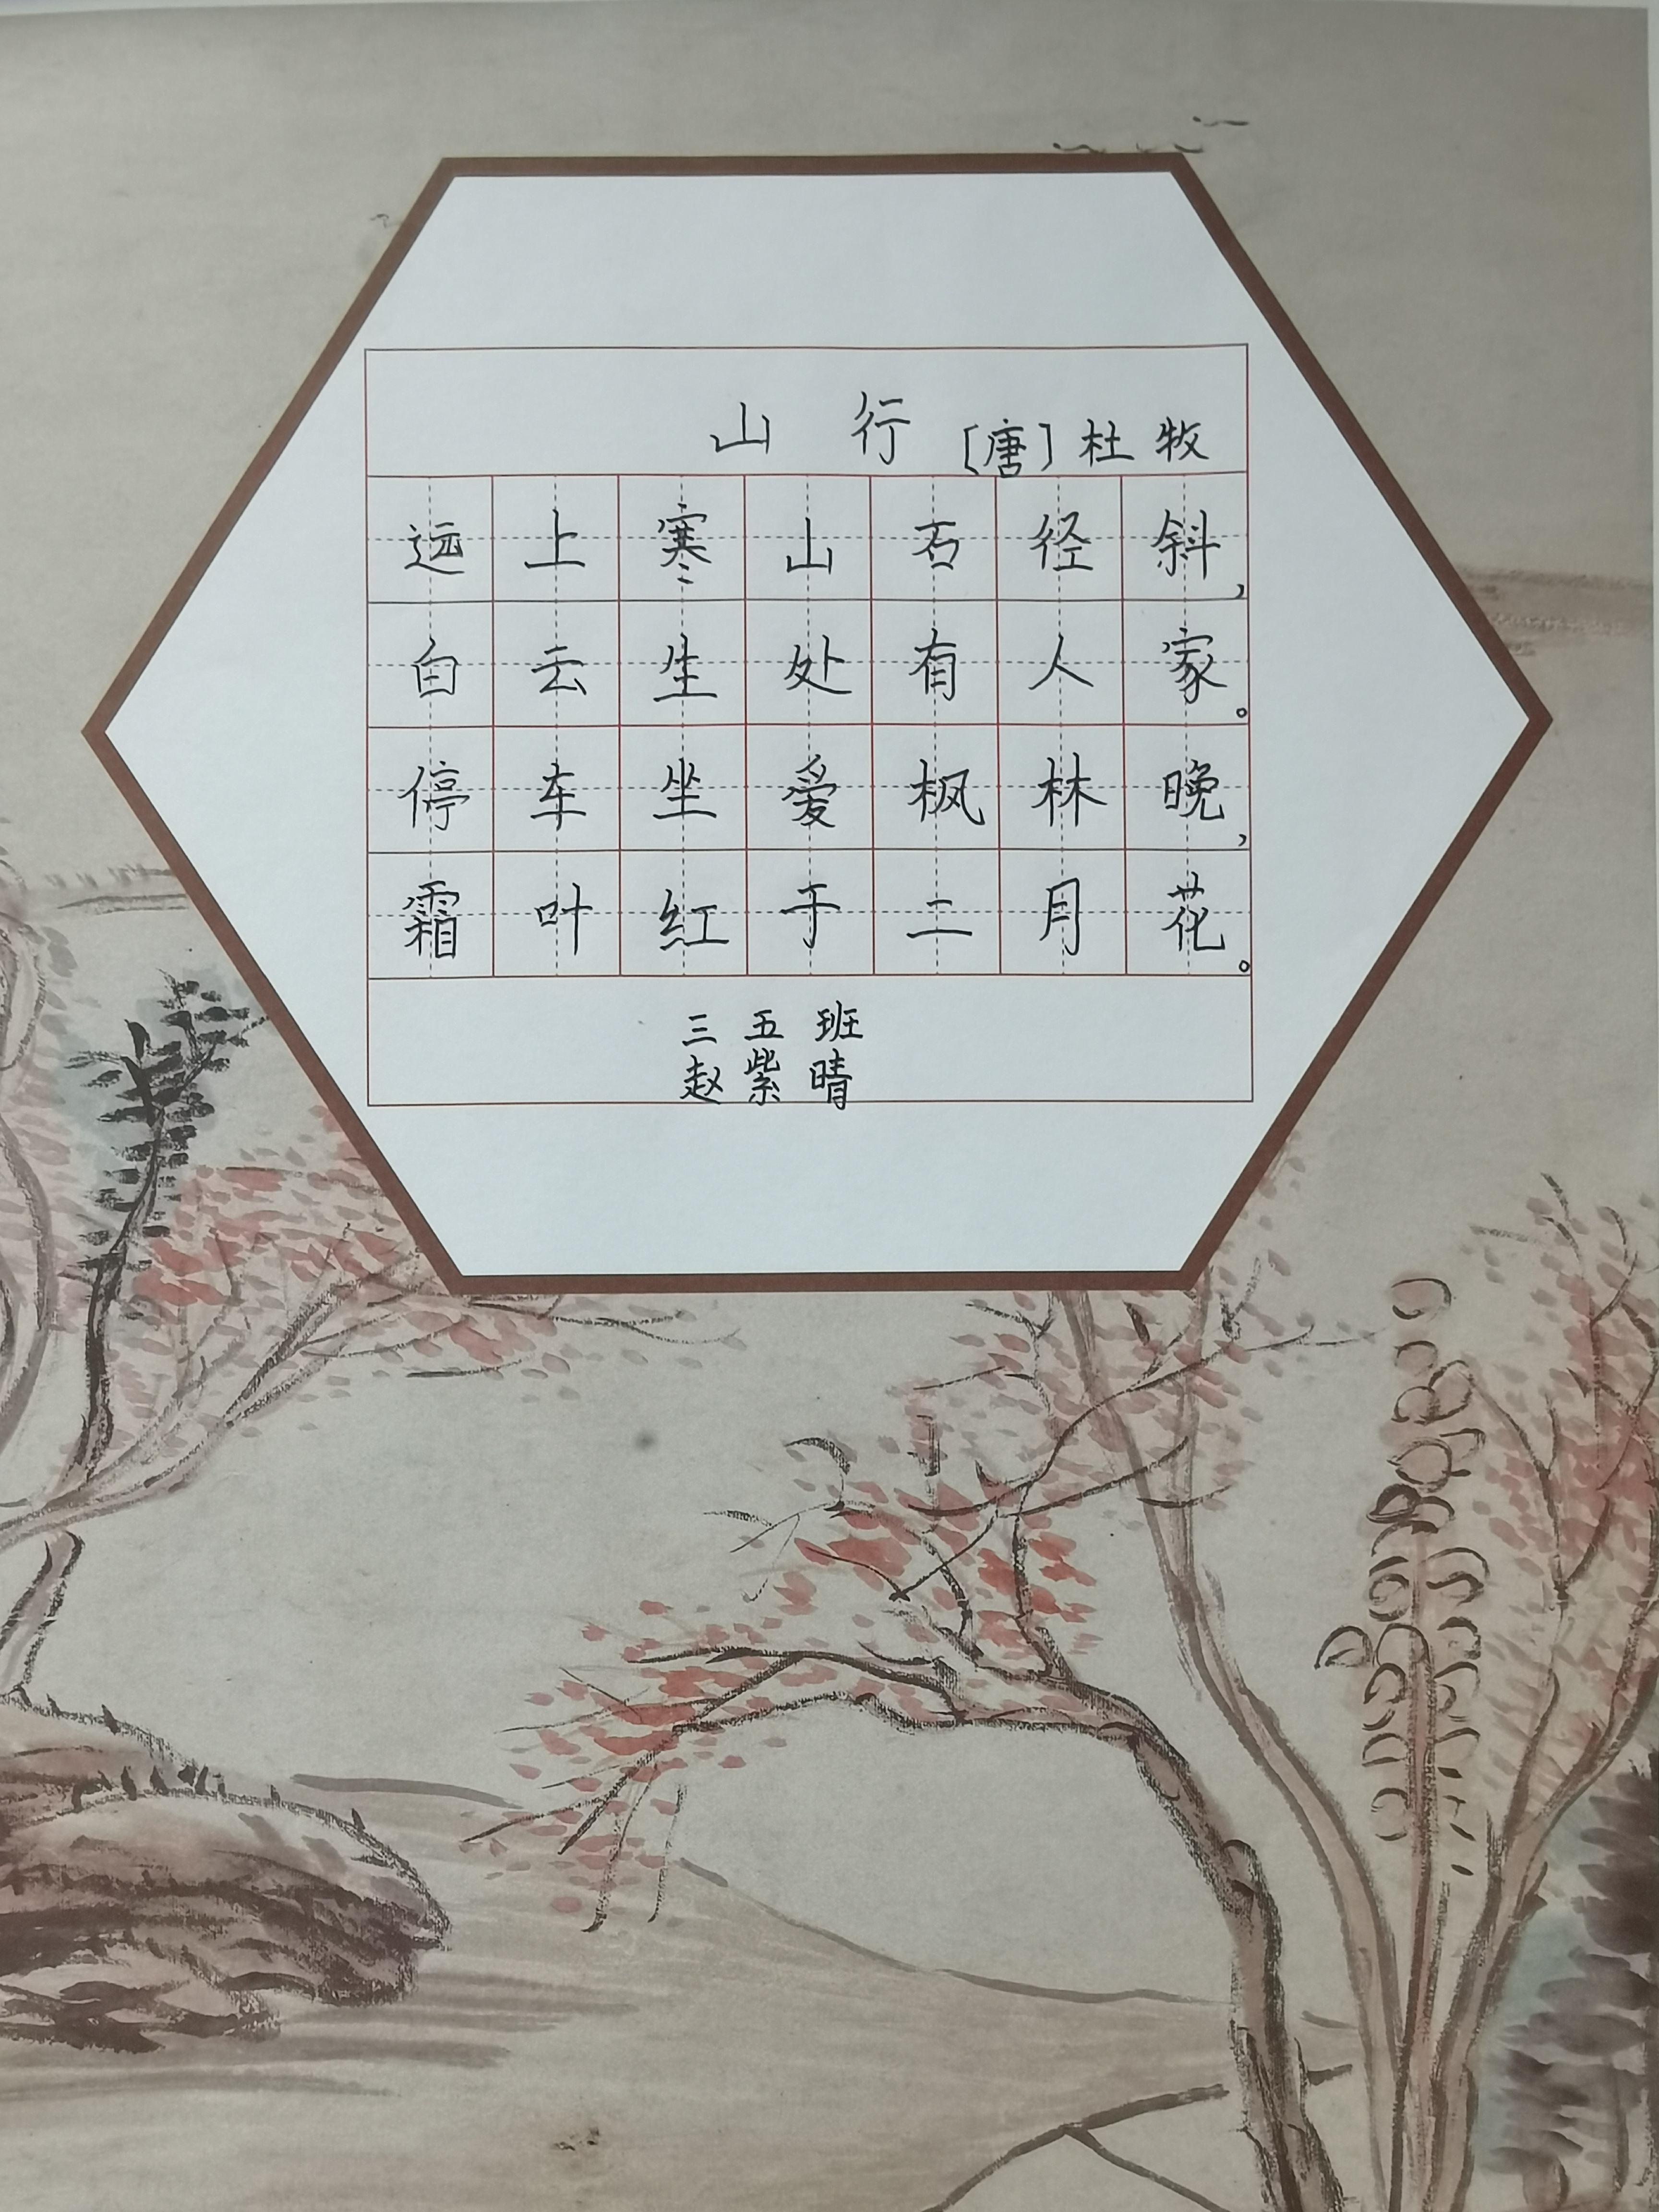 山 行 [唐] 杜牧
远上寒山石径斜，
白云生处有人家。
停车坐爱枫林晚，
霜叶红于二月花。
三五班
赵紫晴